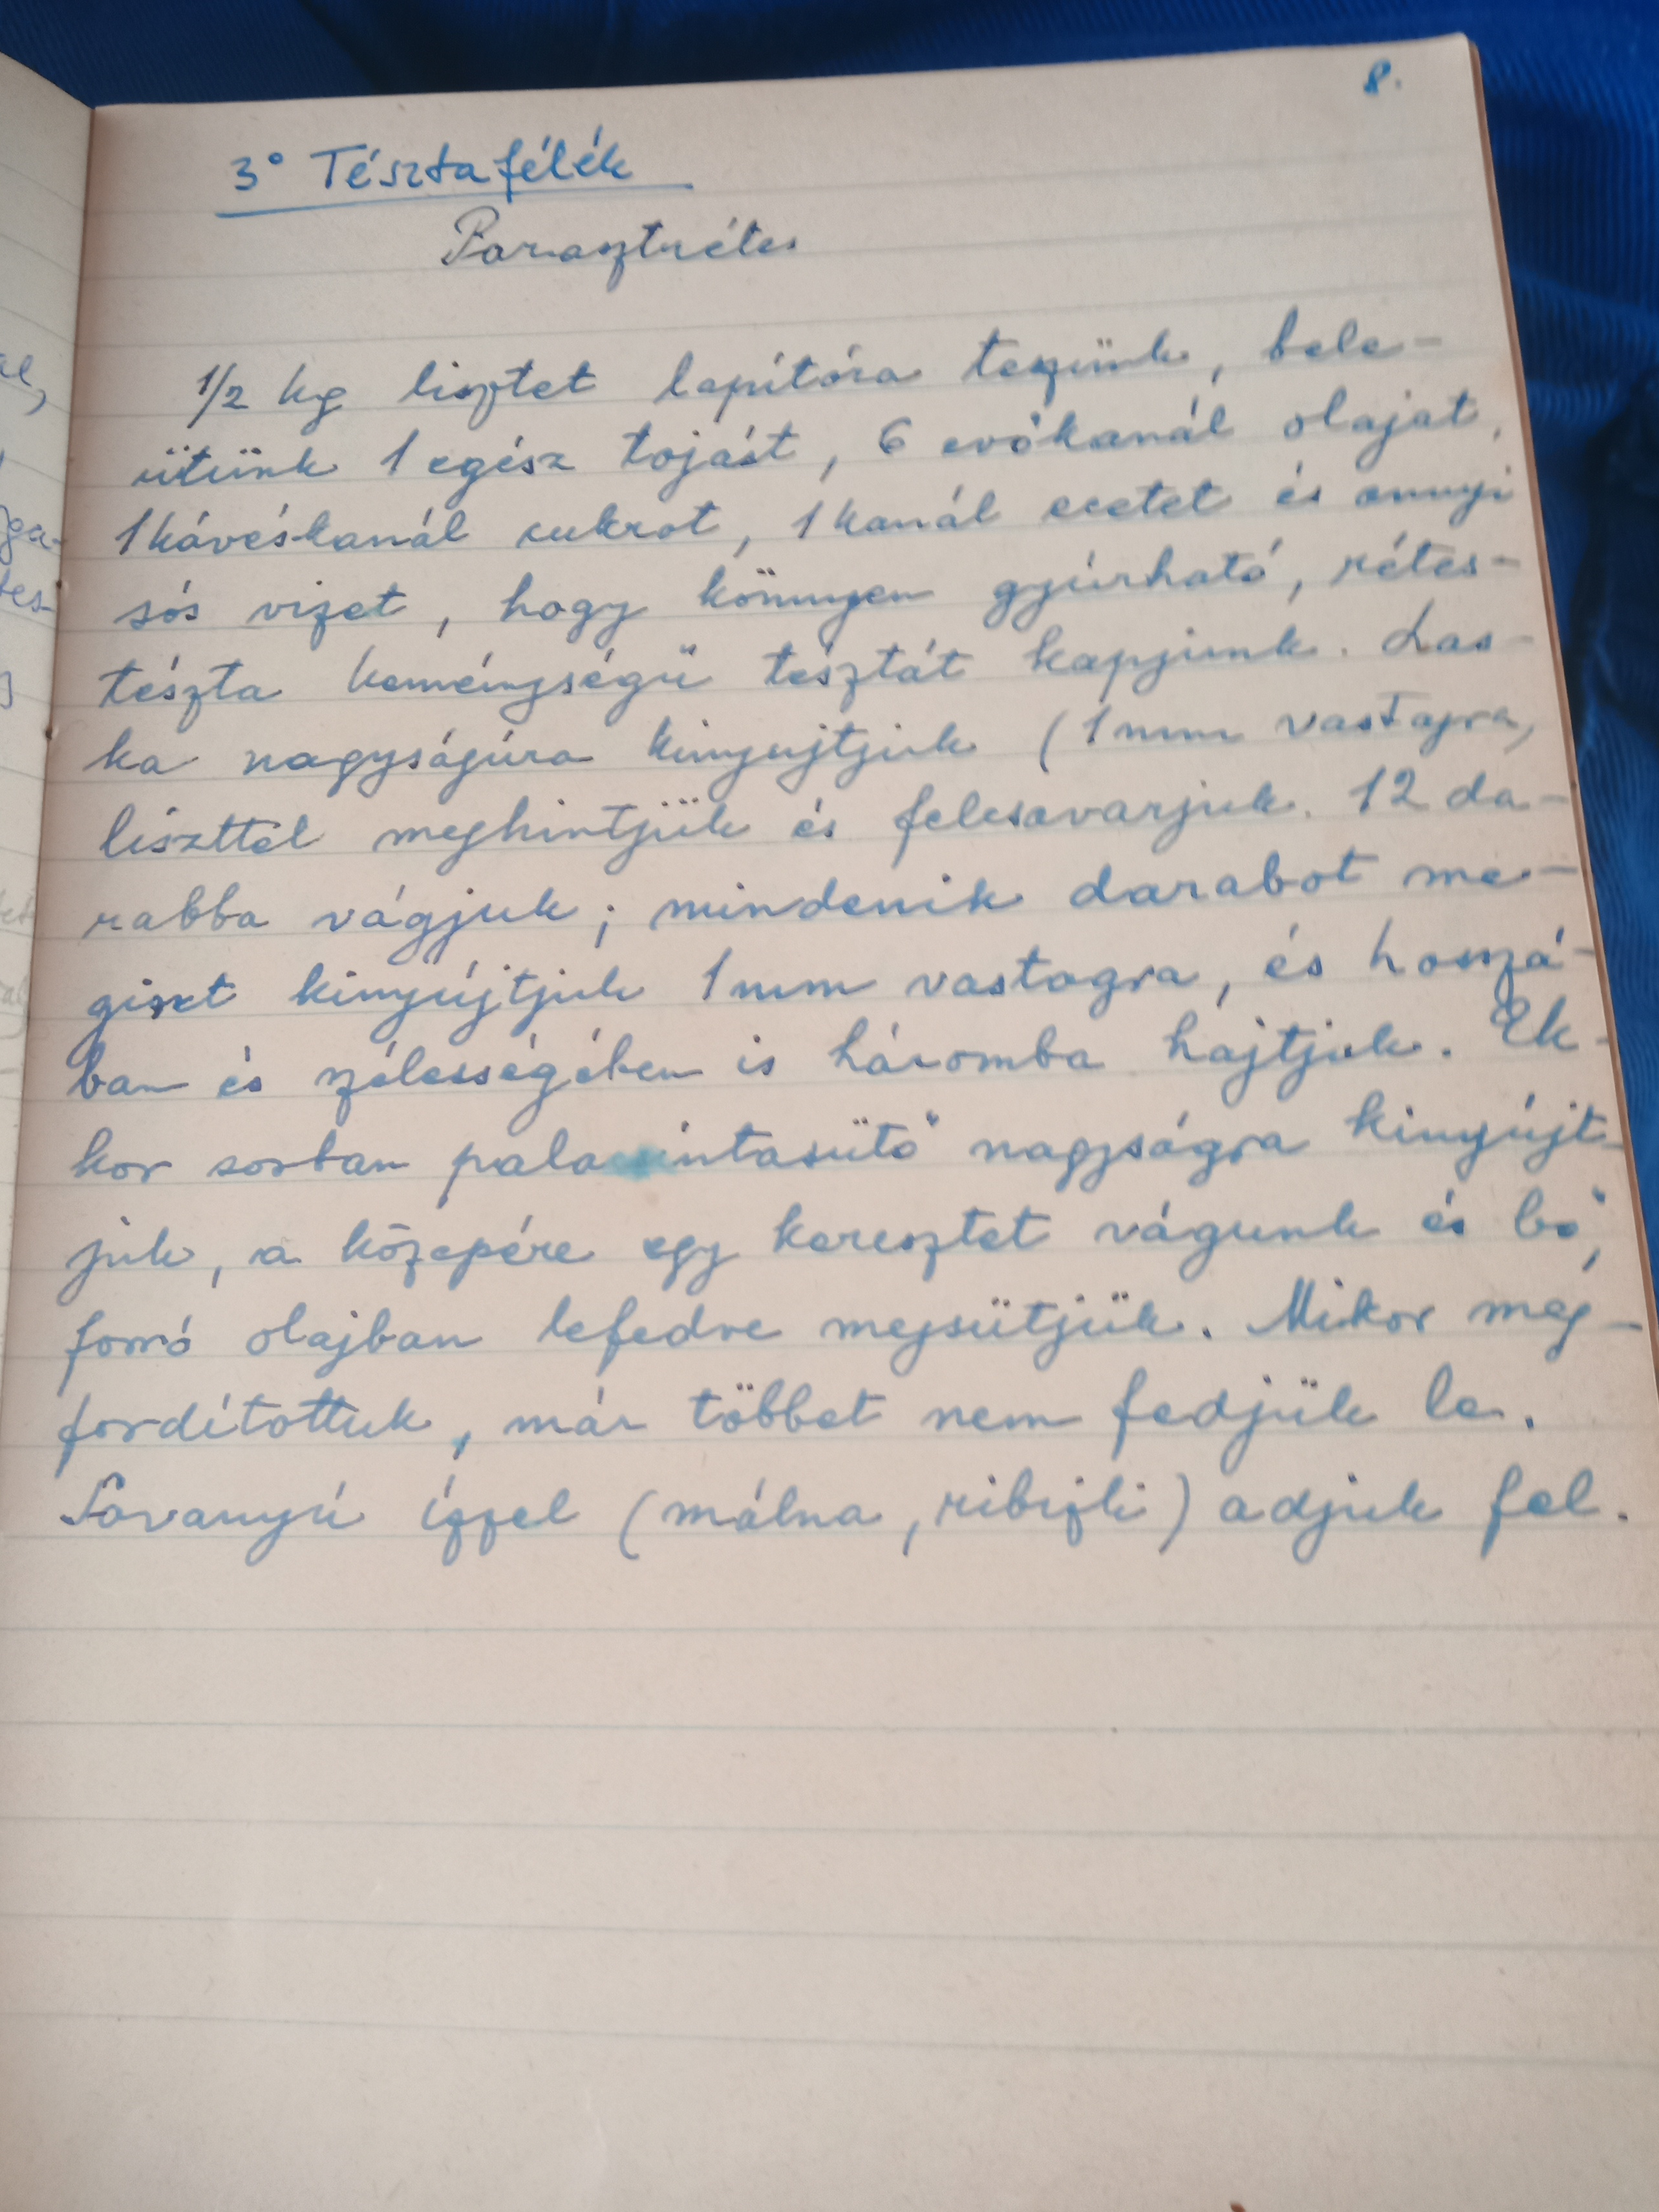 8.
3° Tésztafélék
Parasztrétes
1/2 kg lisztet lapítóra teszünk, bele-
ütünk 1 egész tojást, 6 evőkanál olajat,
1 kávéskanál cukrot, 1 kanál ecetet és annyi
sós vizet, hogy könnyen gyúrható, rétes-
tészta keménységű tésztát kapjunk. Las-
ka nagyságúra kinyujtjuk (1 mm vastagra,
liszttel meghintjük és felcsavarjuk. 12 da-
rabba vágjuk; mindenik darabot me-
gint kinyújtjuk 1 mm vastagra, és hosszá-
ban és szélességében is háromba hajtjuk. Ek-
kor sorban palacsintasütő nagyságra kinyújt-
juk, a közepére egy keresztet vágunk és bő,
forró olajban lefedve megsütjük. Mikor meg-
fordítottuk, már többet nem fedjük le.
Savanyú ízzel (málna, ribizli) adjuk fel.